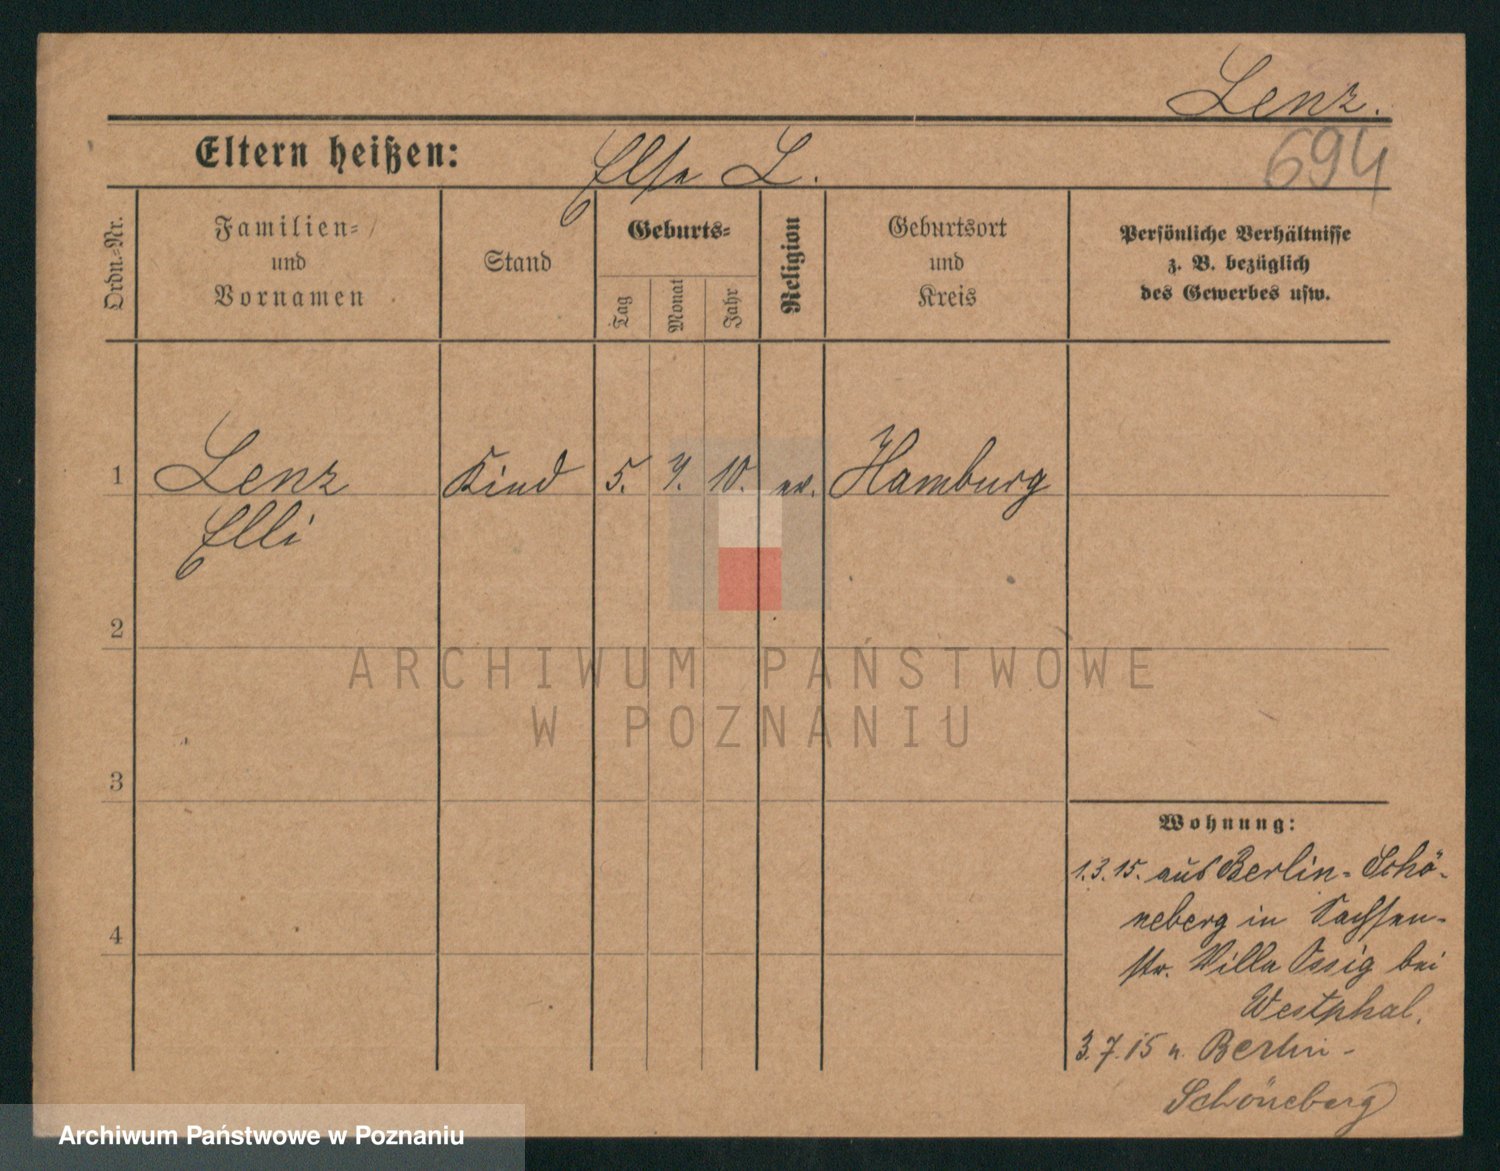 Lenz.
694
Eltern heißen: Else L.
Ordn.-Nr.
Familien-
und
Vornamen
Stand
Geburts-
Tag
Monat
Jahr
Religion
Geburtsort
und
Kreis
Persönliche Verhältnisse
z. B. bezüglich
des Gewerbes usw.
1 Lenz Kind 5. 7. 10. ev. Hamburg
Elli
2
ARCHIWUM PAŃSTWOWE
W POZNANIU
3
Wohnung:
1.3.15. aus Berlin-Schö-
neberg in Sachsen-
str. Villa Ossig bei
Westphal.
4
3.7.15 n. Berlin-
Schöneberg
Archiwum Państwowe w Poznaniu